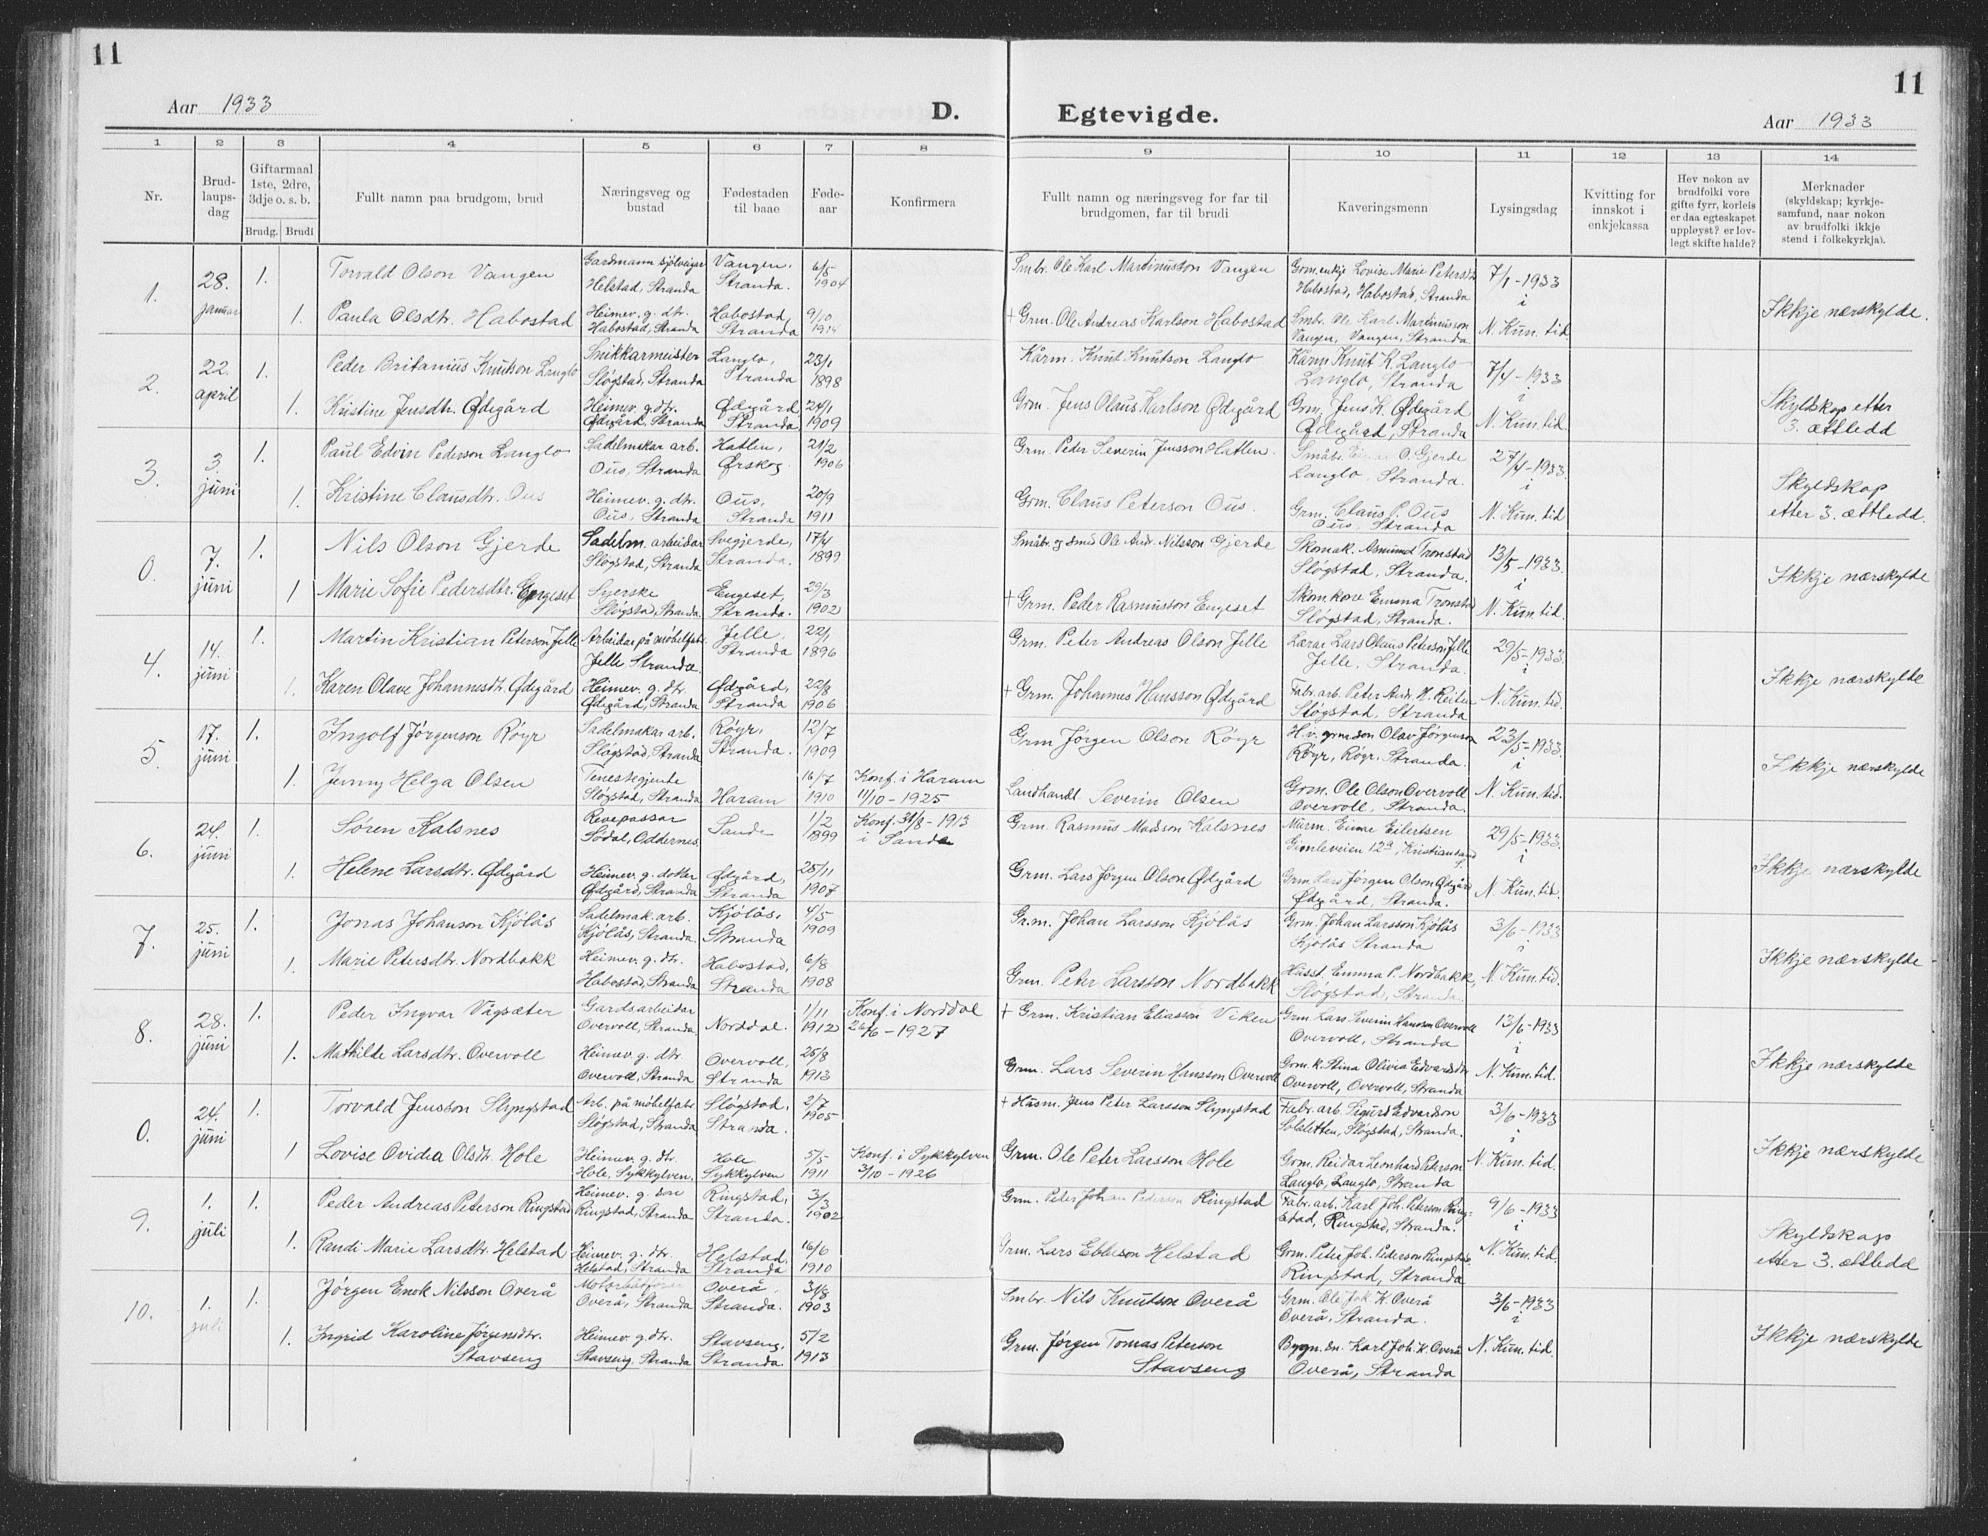 11
11
Aar 1933
D.
Egtevigde.
Aar 1933
1 2 3 4 5 6 7 8 9 10 11 12 13 14
Nr.
Brud-
laups-
dag
Giftarmaal
1ste, 2dre,
3dje o. s. b.
Brudg. Brudi
Fullt namn paa brudgom, brud
Næringsveg og
bustad
Fødestaden
til baae
Føde-
aar
Konfirmera
Fullt namn og næringsveg for far til
brudgomen, far til brudi
Kaveringsmenn
Lysingsdag
Kvitting for
innskot i
enkjekassa
Hev nokon av
brudfolki vore
gifte fyrr, korleis
er daa egteskapet
uppløyst? er lov-
legt skifte halde?
Merknader
(skyldskap; kyrkje-
samfund, naar nokon
av brudfolki ikkje
stend i folkekyrkja).
1. 28. januar
1. Torvald Olson Vangen
Gardmann sjølveigar
Helstad, Stranda
Vangen,
Stranda.
6/5
1904
Smbr. Ole Karl Martinusson Vangen
Grm.enkje Lovise Marie Petersdtr
Habostad, Habostad, Stranda
7/1-1933
i
N. Kun. tid
1. Paula Olsdtr. Habostad
Heimev. g. dtr.
Habostad, Stranda
Habostad,
Stranda
9/10
1914
+ Grm. Ole Andreas Karlson Habostad
Smbr. Ole Karl Martinusson
Vangen, Vangen, Stranda
Ikkje nærskylde.
2. 22. april
1. Peder Britanius Knutson Langlo
Snikkarmeister
Sløgstad, Stranda
Langlo,
Stranda
23/1
1898
Kårm. Knut Knutson Langlo
Kårm Knut K. Langlo
Langlo, Stranda
7/4-1933
i
N. Kun. tid.
1. Kristine Jensdtr. Ødegård
Heimev. g. dtr.
Ødegård, Stranda
Ødegård,
Stranda
24/1
1909
Grm. Jens Olaus Karlson Ødegård
Grm. Jens K. Ødegård
Ødegård, Stranda
Skyldskap etter
3. ættledd
3. 3. juni
1. Paul Edvin Pederson Langlo
Sadelmakar arb.
Ous, Stranda
Hatlen,
Ørskog
21/2
1906
Grm. Peder Severin Jensson Hatlen.
Småbr. Einar O. Gjerde
Langlo, Stranda.
27/4-1933
i
N. Kun. tid
1. Kristine Clausdtr. Ous
Heimev. g. dtr.
Ous, Stranda
Ous,
Stranda
20/9
1911
Grm. Claus Peterson Ous.
Grm. Claus P. Ous
Ous, Stranda
Skyldskap
etter 3. ættledd.
0. 7. juni
1. Nils Olson Gjerde
Sadelm. arbeidar
Sløgstad, Stranda
Svegjerde,
Stranda.
17/4
1899
Småbr. og smed Ole And. Nilsson Gjerde
Skomak. Asmund Tronstad
Sløgstad, Stranda.
13/5-1933.
i
N. Kun. tid.
1 Marie Sofie Pedersdtr. Engeset
Syerske
Sløgstad, Stranda.
Engeset,
Stranda.
29/3
1902
+ Grm. Peder Rasmusson Engeset
Skom.kone Emma Tronstad
Sløgstad, Stranda.
Ikkje nærskylde
4. 14. juni
1. Martin Kristian Peterson Jelle
Arbeidar på møbelfabr.
Jelle, Stranda
Jelle,
Stranda
22/1
1896
Grm. Peter Andreas Olson Jelle
Lærar Lars Olaus Peterson Jelle
Jelle, Stranda.
29/5-1933.
i
N. Kun. tid.
1. Karen Olave Johannesdtr. Ødegård
Heimev. g. dtr.
Ødegård, Stranda
Ødegård,
Stranda
22/8
1906
+ Grm. Johannes Hansson Ødegård
Fabr. arb. Peter Andr. N. Reiten
Sløgstad, Stranda.
Ikkje nærskylde
5. 17. juni
1. Ingolf Jørgenson Røyr
Sadelmakar arb.
Sløgstad, Stranda
Røyr,
Stranda.
12/7
1909
Grm Jørgen Olson Røyr
H.v. grm.son Olav Jørgenson
Røyr, Røyr, Stranda.
23/5-1933.
i
N. Kun. tid.
1. Jenny Helga Olsen
Tenestegjente
Sløgstad, Stranda
Haram
16/7
1910
Konf. i Haram
11/10-1925
Landhandl. Severin Olsen
Grm. Ole Olson Overvoll
Overvoll, Stranda.
Ikkje nærskylde
6. 24. juni
1. Søren Kalsnes
Revepassar
Sødal, Oddernes
Sande
1/2
1899
Konf. 31/8-1913
i Sande
Grm. Rasmus Madsson Kalsnes
Murm. Einar Eilertsen
Gimleveien 12a, Kristiansand
29/5-1933.
i
N. Kun. tid.
1. Helene Larsdtr. Ødegård
Heimev. g. dotter
Ødegård, Stranda
Ødegård,
Stranda
25/11
1907
Grm. Lars Jørgen Olson Ødegård
Grm. Lars Jørgen Olson Ødegård
Ødegård, Stranda.
Ikkje nærskylde
7. 25. juni
1. Jonas Johanson Kjølås
Sadelmak. arb.
Kjølås, Stranda.
Kjølås,
Stranda
4/5
1909
Grm. Johan Larsson Kjølås
Grm. Johan Larsson Kjølås
Kjølås Stranda
3/6-1933
i
N. Kun. tid.
1. Marie Petersdtr. Nordbakk
Heimev. g. dtr.
Habostad, Stranda
Habostad,
Stranda
6/8
1908
Grm. Peter Larsson Nordbakk
Husst. Emma P. Nordbakk,
Sløgstad, Stranda.
Ikkje nærskylde
8. 28. juni
1. Peder Ingvar Vågsæter
Gardsarbeidar
Overvoll, Stranda
Norddal.
1/11
1912
Konf. i Norddal
26/6-1927
+ Grm. Kristian Eliasson Viken
Grm. Lars Severin Hansson Overvoll
Overvoll, Stranda
13/6-1933
i
N. Kun. tid.
1. Mathilde Larsdtr. Overvoll
Heimev. g. dtr.
Overvoll, Stranda
Overvoll,
Stranda
25/8
1913
Grm. Lars Severin Hansson Overvoll
Grm. k. Stina Olivia Edvardsdtr
Overvoll, Overvoll, Stranda
Ikkje nærskylde
0. 24. juni
1. Torvald Jensson Slyngstad
Arb. på møbelfabr.
Sløgstad, Stranda
Sløgstad,
Stranda.
2/7
1905
+ Husm. Jens Peter Larsson Slyngstad
Fabr. arb. Sigurd Edvardson
Solsletten, Sløgstad, Stranda.
3/6-1933
i
N. Kun. tid.
1 Lovise Ovidia Olsdtr. Hole
Heimev. g. dtr.
Hole, Sykkylven.
Hole
Sykkylven
5/5
1911
Konf. i Sykkylven
3/10-1926
Grm. Ole Peter Larsson Hole
Grm. Reidar Leonhard Peterson
Langlo, Langlo, Stranda
Ikkje nærskylde
9. 1. juli
1. Peder Andreas Peterson Ringstad
Heimev. g. son
Ringstad, Stranda
Ringstad,
Stranda.
1902
Grm. Peter Johan Pederson Ringstad
Fabr. arb. Karl Joh. Peterson Ring-
stad, Ringstad, Stranda.
9/6-1933
i
N. Kun. tid.
1. Randi Marie Larsdtr. Helstad
Heimev. g. dtr.
Helstad, Stranda
Helstad,
Stranda
16/6
1910
Grm. Lars Ebbeson Helstad
Grm. Peter Joh. Pederson Ringstad,
Ringstad, Stranda
Skyldskap
etter 3. ættledd
10. 1. juli
1. Jørgen Enok Nilsson Overå
Overå, Stranda
Overå,
Stranda.
31/8
1903
Smbr. Nils Knutson Overå
Grm. Ole Joh. K. Overå
Overå, Stranda.
3/6-1933
i
N. Kun. tid.
1. Ingrid Karoline Jørgensdtr.
Stavseng
Heimev. g. dtr.
Stavseng, Stranda
Stavseng,
Stranda
5/2
1913
Grm. Jørgen Tomas Peterson
Stavseng
Bygn. sn. Karl Joh. K. Overå
Overå, Stranda
Ikkje nærskylde